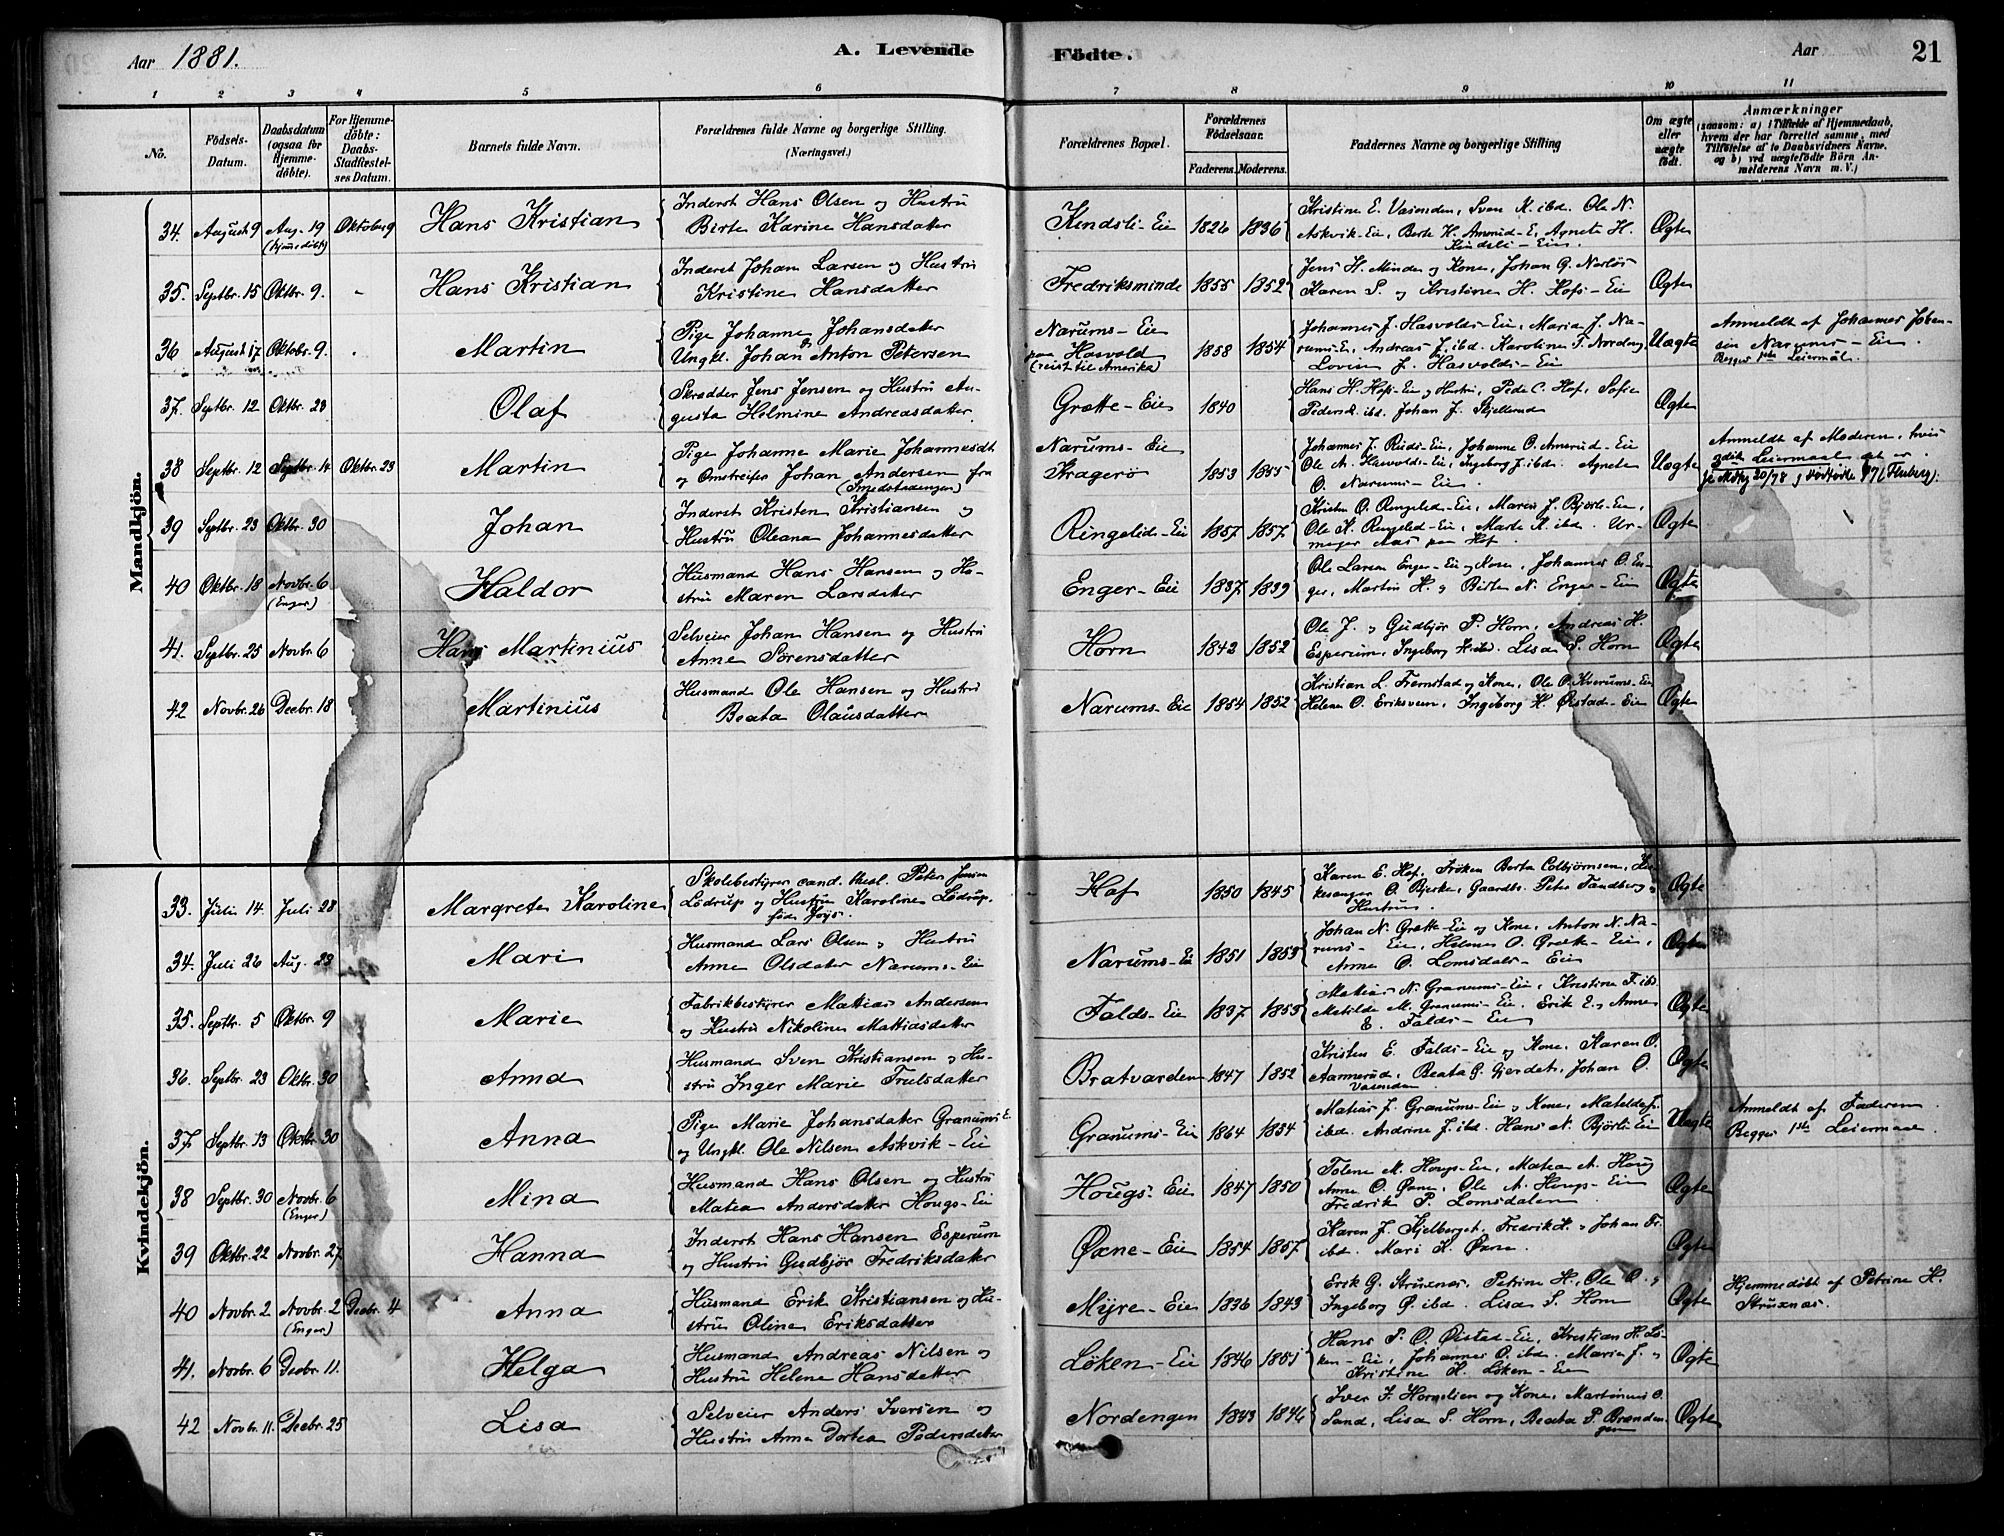 Aar 1881.
A. Levende
Födte.
Aar
21
1 2 3 4 5 6 7 8 9 10 11
No.
Födsels-
Datum.
Daabsdatum
(ogsaa for
Hjemme-
döbte).
For Hjemme-
döbte:
Daabs-
Stadfæstel-
ses Datum.
Barnets fulde Navn.
Forældrenes fulde Navne og borgerlige Stilling.
(Næringsvei.)
Forældrenes Bopæl.
Forældrenes
Födselsaar.
Faderens. Moderens.
Faddernes Navne og borgerlige Stilling
Om ægte
eller
uægte
födt.
Anmærkninger
(saasom: a) i Tilfælde af Hjemmedaab,
hvem der har forrettet samme, med
Tilföielse af to Daabsvidners Navne,
og b) ved uægtefödte Börn An-
melderens Navn m. V.)
Mandkjön.
34. August 9 Aug. 19 (hjmedöbt) Oktober 9 Hans Kristian
Inderst Hans Olsen og Hustru
Birte Karine Hansdatter
Kindsli-Eie 1826 1836
Kristine E. Vasenden, Sven K. ibd. Ole N.
Askvik-Eie, Berte H. Amerud-E, Agnete H.
Kindsli-Eie.
Ægte
35. Septbr. 15 Oktbr. 9. - Hans Kristian
Inderst Johan Larsen og Hustru
Kristine Hansdatter
Fredriksminde 1855 1852
Jens H. Minde og Kone, Johan G.
Karen S. og Kristine H. Hofs-Eie
Ægte
36 August 17 Oktobr. 9. Martin
Pige Johanne Johansdatter
Ungkl. Johan Anton Petersen
Narums-Eie
paa Hasvold
(reist til Amerika)
1858 1854
Johannes J. Hasvolds-Eie, Maria J. Na-
rums-E, Andreas J. ibd. Karoline T. Nordeng
Lovise J. Hasvolds-Eie
Uægte
Anmeldt af Johannes Johan-
sen Narums-Eie.
Begges 1ste Leiermål.
37. Septbr. 12 Oktbr. 23 Olaf
Skrædder Jens Jensen og Hustru Au-
gusta Helmine Andreasdatter
Grætte-Eie 1840
Hans H. Hofs-Eie og Hustru, Peder C. Hof, Sofie
Pedersd. ibd. Johan J. Skjellerud
Ægte
38 Septbr. 12 Septbr. 14 Oktbr. 23 Martin
Pige Johanne Marie Johannesdt
og Omstreifer Johan Andersen fra
(Smedstadengen)
Narums-Eie
Kragerö
1853 1855
Johannes J. Ruds-Eie, Johanne O. Amerud-Eie
Ole A. Hasvolds-Eie, Ingeborg J. ibd. Agnete
O. Narums-Eie
Uægte
Anmeldt af Moderen, hvis
3die Leiermaal det er.
39 Septbr. 23 Oktbr. 30 Johan
Inderst Kristen Kristiansen og
Hustru Oleana Johannesdatter
Ringelids-Eie 1857 1857
Kristen O. Ringelid-Eie, Maria J. Björle-Eie,
Ole K. Ringelid-Eie, Marte K. ibd. Ur-
mager Aas paa Hof.
Ægte
40 Oktbr. 18 Novbr. 6 (Enger) Haldor
Husmand Hans Hansen og Hu-
stru Maren Larsdatter
Enger-Eie 1837 1839
Ole Larsen Enger-Eie og Kone, Johannes O. En-
ger, Martin H. og Birte N. Enger-Eie
Ægte
41. Septbr. 25 Novbr. 6 Hans Martinius
Selveier Johan Hansen og Hustru
Anne Sörensdatter
Horn 1842 1852
Ole J. og Gudbjör P. Horn, Andreas H.
Esperum, Ingeborg H. ibd. Lisa S. Horn
Ægte
42 Novbr. 26 Decbr. 18 Martinius
Husmand Ole Hansen og Hustru
Beata Olausdatter
Narums-Eie 1854 1852
Kristian L. Fremstad og Kone, Ole O. Kverums-Eie
Helene O. Eriksveen, Ingeborg H. Östad-Eie
Ægte
Kvindekjön.
33. Juli 14. Juli 28 Margrete Karoline
Skolebestyrer cand. theol. Peter Jensen
Lödrup og Hustru Karoline Lödrup,
föd Juys.
Hof 1850 1845
Karen E. Hof, Fröken Berta Colbjörnsen, Kir-
kesanger O. Bjerke, Gaardbr. Peter Tandberg og
Hustru.
Ægte
34. Juli 26 Aug. 23 Mari
Husmand Lars Olsen og Hustru
Anne Olsdatter Narums-Eie
Narums-Eie 1851 1853
Johan N. Grætte-Eie og Kone, Anton N. Na-
rums-Eie, Helene O. Grætte-Eie,
Anne O. Lomsdals-Eie
Ægte
35. Septbr. 5 Oktbr. 9 Marie
Fabrikbestyrer Mattias Andersen
og Hustru Nikoline Mattiasdatter
Falds-Eie 1837 1853
Matias N. Granums-Eie, Kristine F. ibd.
Matilde M. Granums-Eie. Erik E. og Anne
E. Falds-Eie
Ægte
36. Septbr. 23 Oktbr. 30 Anna
Husmand Sven Kristiansen og Hu-
stru Inger Marie Trulsdatter
Bratvarden 1847 1852
Kristen E. Falds-Eie og Kone, Karen O.
Aamerud, Beata G. Gjerdet, Johan O.
Vasenden
Ægte
37. Septbr. 13 Oktbr. 30 Anna
Pige Marie Johansdatter Granums E.
og Ungkl. Ole Nilsen Askvik-Eie
Granums-Eie 1864 1854
Matias J. Granums-Eie og Kone, Matilde J.
ibd. Andrine J. ibd. Hans N. Björli-Eie
Uægte
Anmeldt af Faderen.
Begges 1ste Leiermaal.
38 Septbr. 30 Novbr. 6 (Enger) Mina
Husmand Hans Olsen og Hustru
Matea Andersdatter Hougs-Eie
Hougs-Eie 1847 1850
Tolene M. Hougs-Eie, Matea A. Houg
Anne O. Öxne, Ole A. Hougs-Eie
Fredrik P. Lomsdalen
Ægte
39 Oktbr. 22 Novbr. 27 Hanna
Inderst Hans Hansen Esperum
og Hustru Gudbjör Fredriksdatter
Öxne-Eie 1854 1857
Karen J. Kjelberget, Fredrik H. og Johan Fr.
ibd. Mari K. Öxne.
Ægte
40 Novbr. 2 Novbr. 2 (Enger) Decbr. 4 Anna
Husmand Erik Kristiansen og Hu-
stru Oline Eriksdatter
Myre-Eie 1836 1843
Erik G. Struxnæs, Petrine H., Ole O. og
Ingeborg O. ibd. Lisa S. Horn
Ægte
Hjemmedöbt af Petrine H.
Struxnæs.
41. Novbr. 6 Decbr. 11. Helga
Husmand Andreas Nilsen og
Hustru Helene Hansdatter
Löken-Eie 1846 1851
Hans P. O. Östad-Eie, Kristian H. Lö-
ken-Eie, Johannes O. ibd. Maria J. og
Kristine H. Löken-Eie
Ægte
42 Novbr. 11. Decbr. 25 Lisa
Selveier Anders Iversen og
Hustru Anne Dortea Pedersdatter
Nordengen 1843 1846
Iver J. Horgelien og Kone, Martinus O.
Sand, Lisa S. Horn, Beata P. Brænden-
gen
Ægte